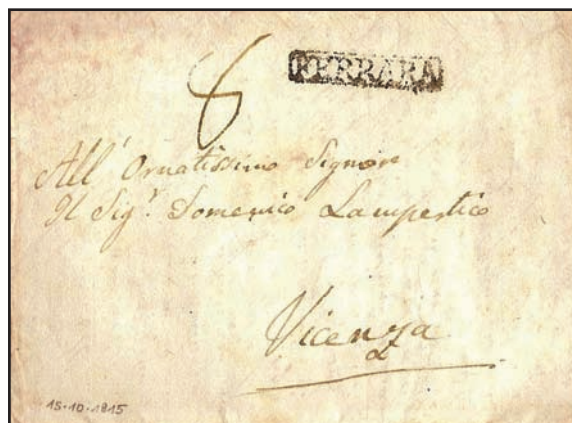 6
FERRARA
All' Ornatissimo Signor
Il Sig.r Domenico Lampertico
Vicenza
15-10-1815